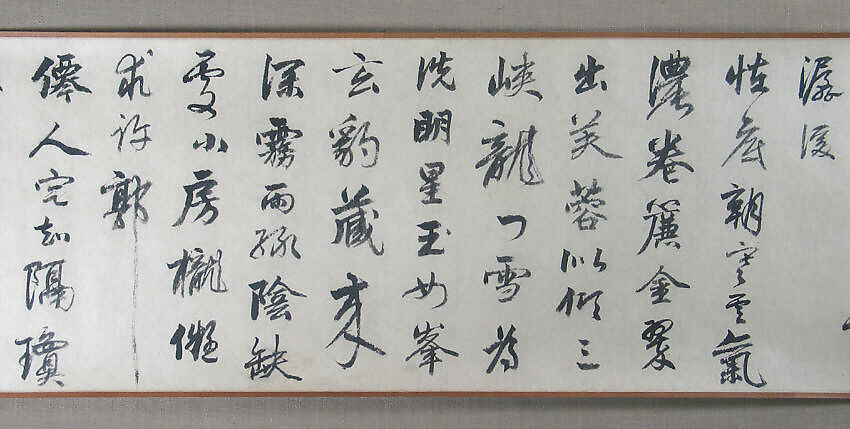 潺湲
恠底朝寒雲氣
濃卷簾金翠
出芙蓉似傾三
峽龍門雪為
洗明星玉女峯
玄豹藏來
深霧雨緑陰缺
處小房櫳儻
求許郭
僊人定知隔瓊